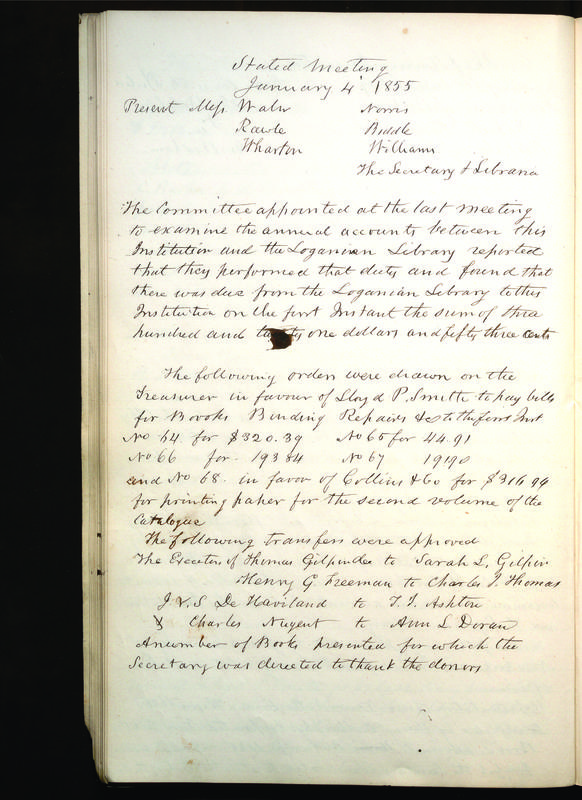 Stated Meeting
January 4th 1855
Present Messrs Waln Norris
Rawle Biddle
Wharton Williams
The Secretary & Libraria
The Committee appointed at the last meeting
to examine the annual accounts between this
Institution and the Loganian Library reported
that they performed that duty and found that
there was due from the Loganian Library to this
Institution on the first Instant the sum of three
hundred and twenty one dollars and fifty three cents
The following orders were drawn on the
Treasurer in favour of Lloyd P. Smith to pay bills
for Books Binding Repairs &c to the first Inst
No 64 for $320.39 No 65 for 44.91
No 66 for 193 84 No 67 19190
and No 68. in favor of Collins & Co for $316 94
for printing paper for the second volume of the
Catalogue
The following transfers were approved
The Executors of Thomas Gilpin dec to Sarah L. Gilpin
Henry G Freeman to Charles J. Thomas
J & S De Haviland to T. J. Ashton
Charles Nugent to Ann L Doran
A number of Books presented for which the
Secretary was directed to thank the donors